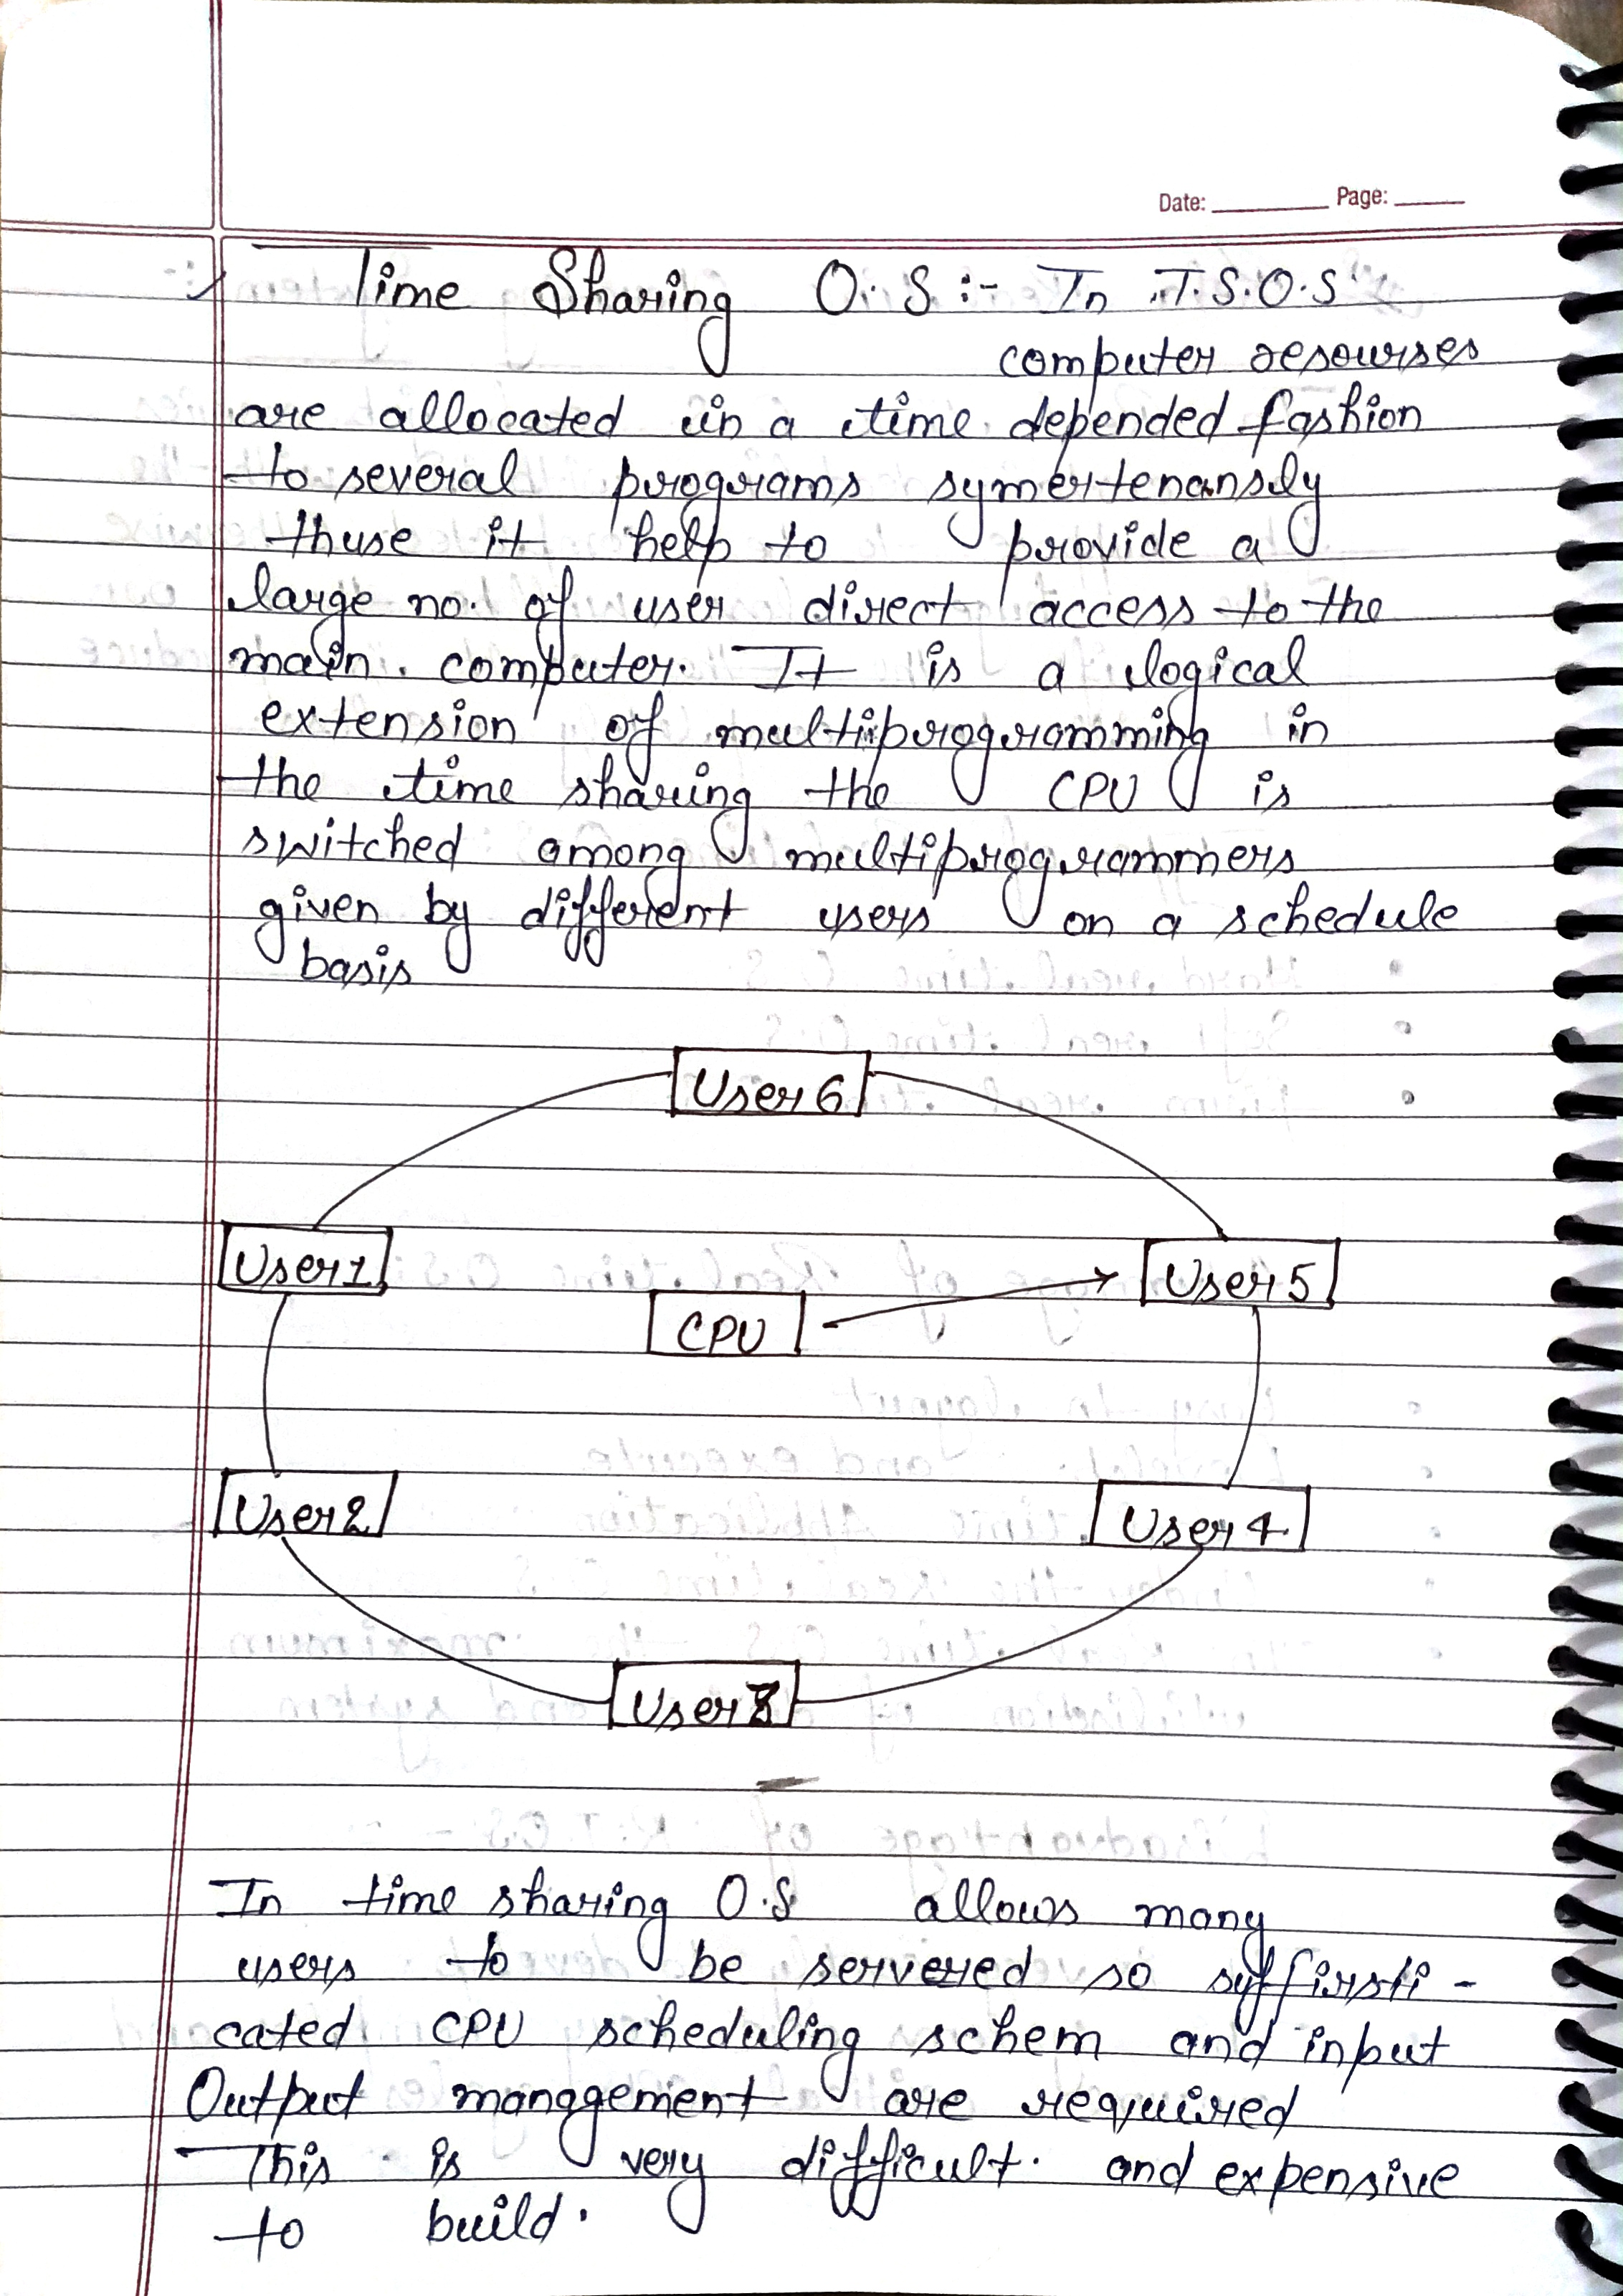 Date: Page:
Time Sharing O.S :- In T.S.O.S
computer resourses
are allocated in a time depended fashion
to several programs symertenansly
thuse it help to provide a
large no. of user direct access to the
main computer. It is a logical
extension of multiprogramming in
the time sharing the CPU is
switched among multiprogrammers
given by different users on a schedule
basis
User 6
User 1
User 5
CPU
User 2
User 4
User 3
In time sharing O.S allows many
users to be servered so syffirsti-
cated CPU scheduling schem and input
Output management are required
This is very difficult. and expensive
to build.